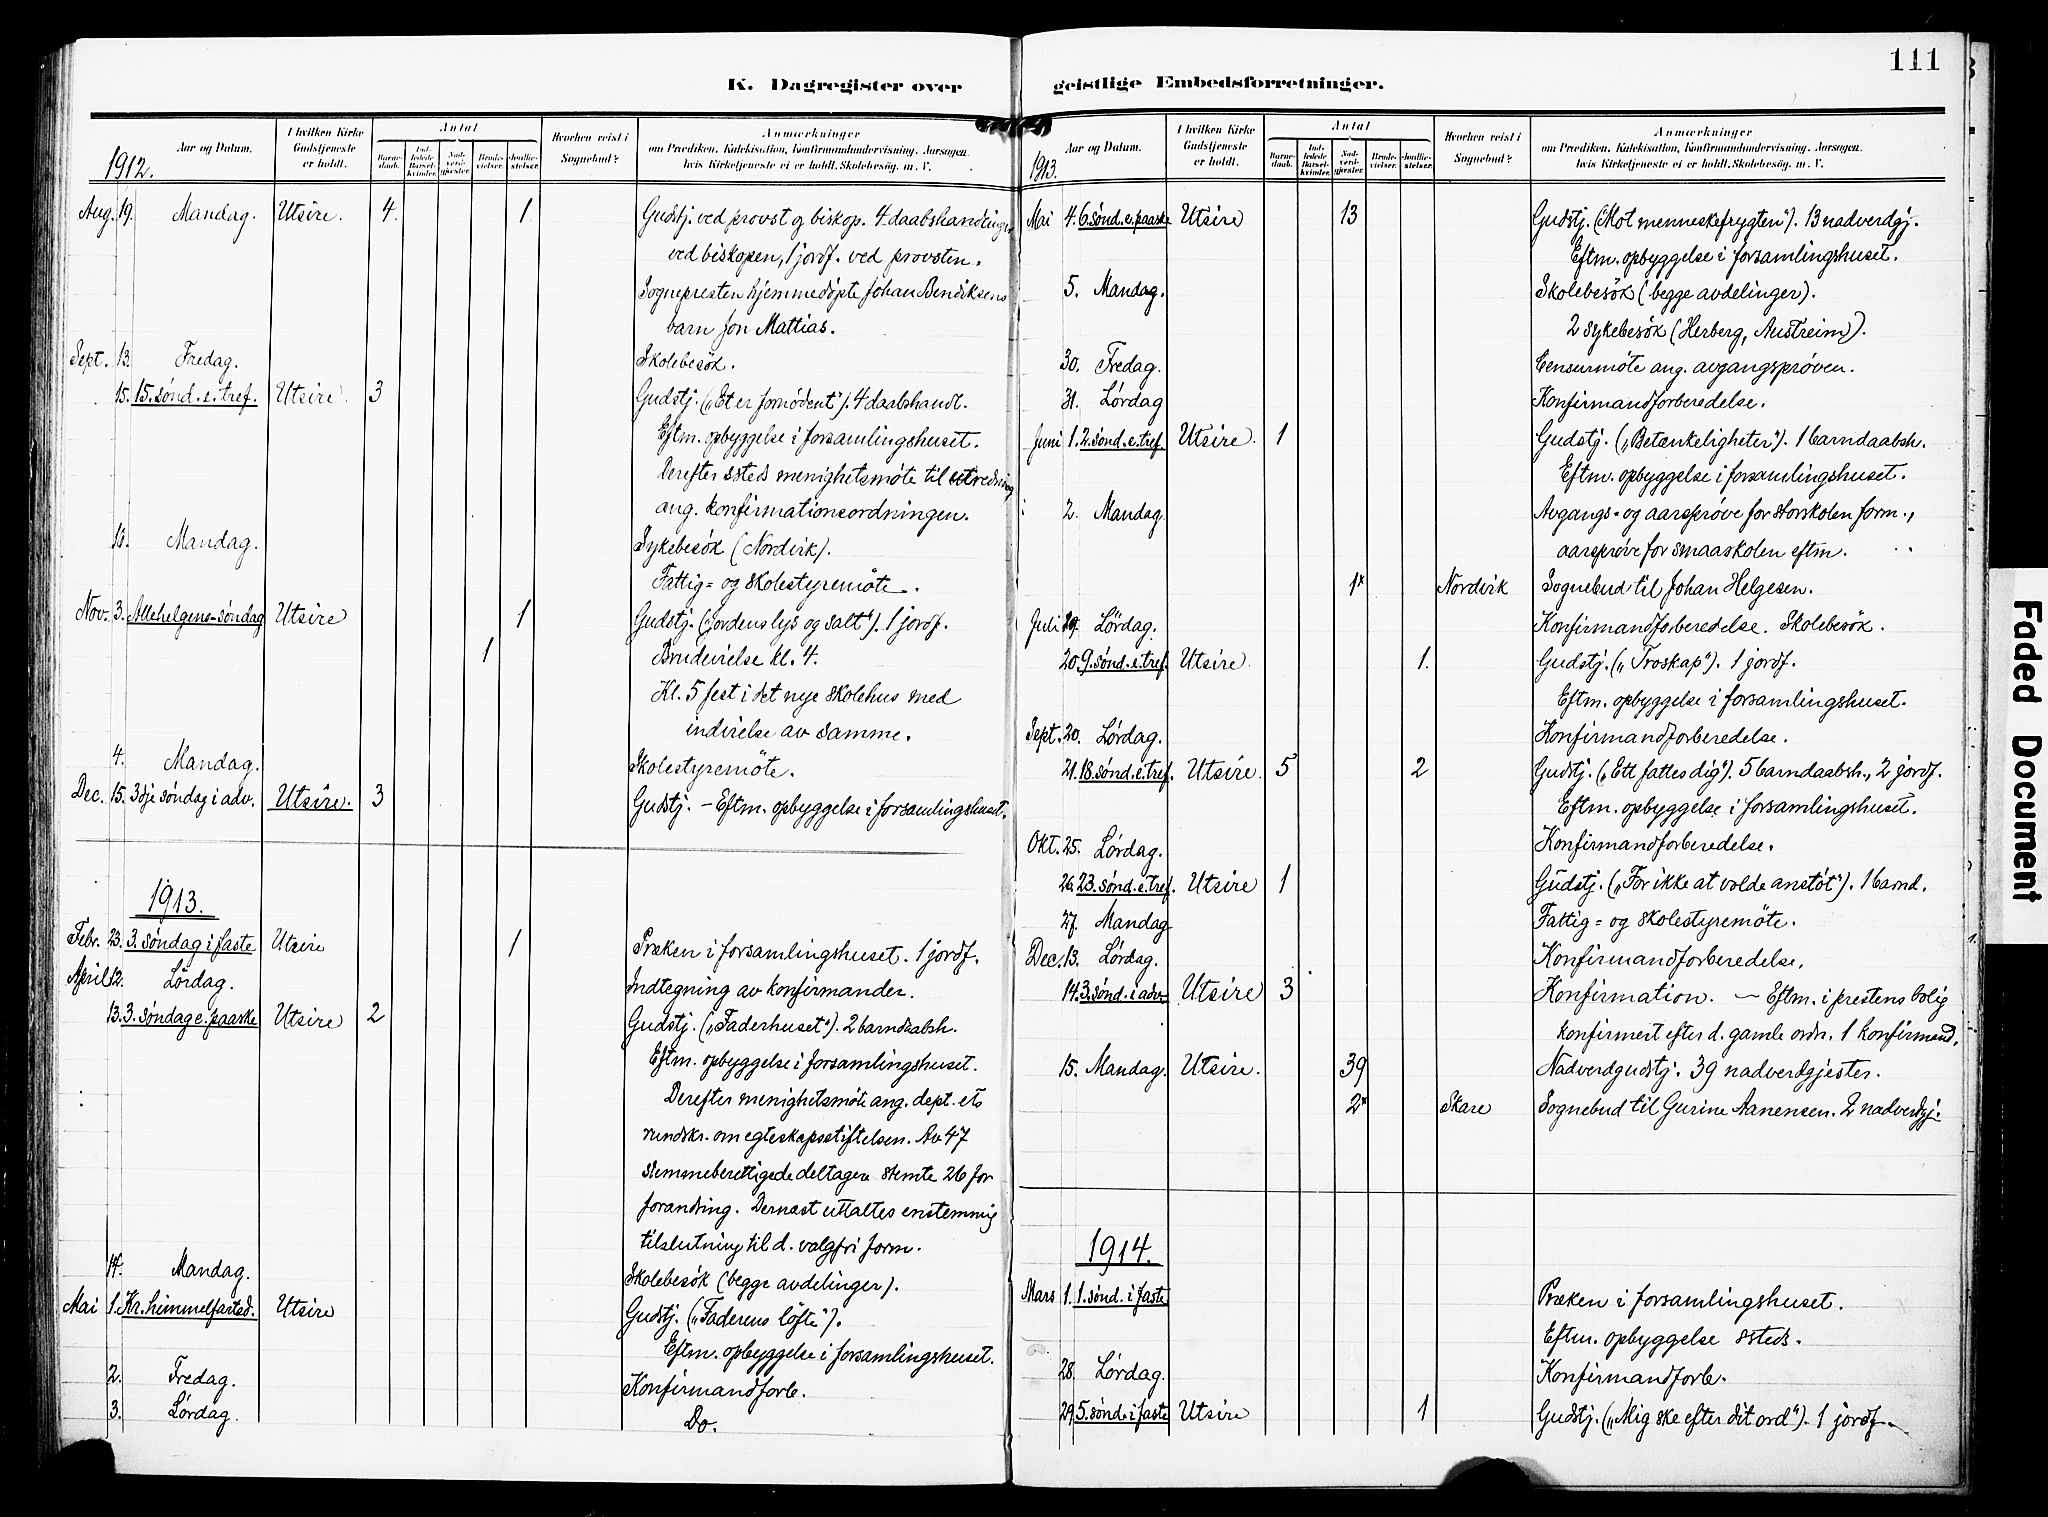 111
K. Dagregister over
Aar og Datum. I hvilken Kirke Gudstjeneste er holdt. Antal Barne-daab. Ind-ledede Barsel-kvinder. Nad-verd-gjester. Brude-vielser. Jordfæ-stelser. Hvorhen reist i Sognebud? Anmærkninger
om Prædiken, Katekisation, Konfirmandundervisning, Aarsagen,
hvis Kirketjeneste ei er holdt, Skolebesøg, m. V.
1912.
Aug. 19. Mandag. Utsire. 4. 1 Gudstj. ved provst og biskop. 4 daabshandlinger
ved biskopen, 1 jordf. ved provsten.
Sognepresten hjemmedöpte Johan Bendiksens
barn Jon Mattias.
Sept. 13. Fredag. Skolebesök.
15. 15. sønd. e. tref. Utsire. 3 Gudstj. („Et er fornödent“). 4 daabshandl.
Eftm. opbyggelse i forsamlingshuset.
Derefter ssteds menighetsmöte til utredning
ang. konfirmationsordningen.
16. Mandag. Sykebesök (Nordvik).
Fattig- og skolestyremöte.
Nov. 3. Allehelgens-søndag Utsire 1 Gudstj. („Jordens lys og salt“). 1 jordf.
1 Brudevielse kl. 4.
Kl. 5 fest i det nye skolehus med
indvielse av samme.
4. Mandag. Skolestyremöte.
Dec. 15. 3dje søndag i adv. Utsire. 3 Gudstj. – Eftm. opbyggelse i forsamlingshuset.
1913.
Febr. 23. 3. søndag i faste Utsire 1 Præken i forsamlingshuset. 1 jordf.
April 12. Lördag. Indtegning av konfirmander.
13. 3. søndag e. paaske Utsire 2 Gudstj. („Faderhuset“). 2 barndaabsh.
Eftm. opbyggelse i forsamlingshuset.
Derefter menighetsmöte ang. dept. ets
rundskr. om egteskapsstiftelsen. Av 47
stemmeberettigede deltagere stemte 26 for
forandring. Dernæst uttaltes enstemmig
tilslutning til d. valgfri form.
14. Mandag. Skolebesök (begge avdelinger).
Mai 1. Kr. himmelfartsd. Utsire Gudstj. („Faderens löfte“).
Eftm. opbyggelse i forsamlingshuset.
2. Fredag. Konfirmandforb.
3. Lørdag. Do.
geistlige Embedsforretninger.
Aar og Datum. I hvilken Kirke Gudstjeneste er holdt. Antal Barne-daab. Ind-ledede Barsel-kvinder. Nad-verd-gjester. Brude-vielser. Jordfæ-stelser. Hvorhen reist i Sognebud? Anmærkninger
om Prædiken, Katekisation, Konfirmandundervisning, Aarsagen,
hvis Kirketjeneste ei er holdt, Skolebesøg, m. V.
1913.
Mai 4. 6. sønd. e. paaske Utsire 13 Gudstj. („Mot menneskefrygten“). 13 nadverdgj.
Eftm. opbyggelse i forsamlingshuset.
5. Mandag. Skolebesök (begge avdelinger).
2 sykebesök (Herberg, Austreim).
30. Fredag. Censurmöte ang. avgangspröven.
31. Lørdag Konfirmandforberedelse.
Juni 1. 2. sønd. e. tref. Utsire. 1 Gudstj. („Betænkeligheter“). 1 barndaabsh.
Eftm. opbyggelse i forsamlingshuset.
2. Mandag. Avgangs- og aarspröve for storskolen form.,
aarspröve for smaaskolen eftm.
1x Nordvik Sognebud til Johan Helgesen.
Juli 19. Lørdag. Konfirmandforberedelse. Skolebesök.
20. 9. sønd. e. tref. Utsire. 1. Gudstj. („Troskap“). 1 jordf.
Eftm. opbyggelse i forsamlingshuset.
Sept. 20. Lørdag. Konfirmandforberedelse.
21. 18. sønd. e. tref. Utsire. 5 2 Gudstj. („Ett fattes dig“). 5 barndaabsh., 2 jordf.
Eftm. opbyggelse i forsamlingshuset.
Okt. 25. Lørdag. Konfirmandforberedelse.
26. 23. sønd. e. tref. Utsire 1 Gudstj. („For ikke at volde anstöt“). 1 barnd.
27. Mandag Fattig- og skolestyremöte.
Dec. 13. Lørdag. Konfirmandforberedelse.
14. 3. sønd. i adv. Utsire 3 Konfirmation. – Eftm. i prestens bolig
konfirmert efter d. gamle ordn. 1 konfirmand.
15. Mandag. Utsire. 39 Nadverdgudstj. 39 nadverdgjester.
2x Skare Sognebud til Gurine Aanensen. 2 nadverdgj.
1914.
Mars 1. 1. sønd. i faste Præken i forsamlingshuset.
Eftm. opbyggelse ssteds.
28. Lørdag. Konfirmandforb.
29. 5. sønd. i faste Utsire 1 Gudstj. („Mig ske efter dit ord“). 1 jordf.
Faded Document